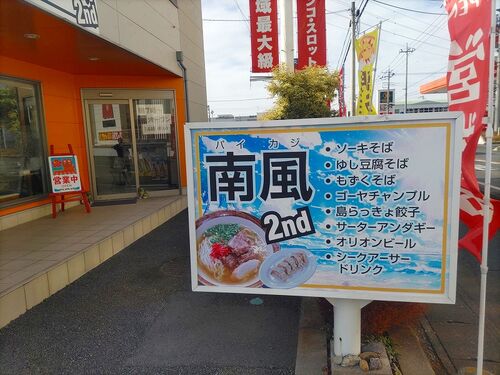 2nd
域最大級
ンコ・スロット
営業中
パイカジ
南風
2nd
・ソーキそば
・ゆし豆腐そば
・もずくそば
・ゴーヤチャンプル
・島らっきょ餃子
・サーターアンダギー
・オリオンビール
・シークアーサー
ドリンク
営業中